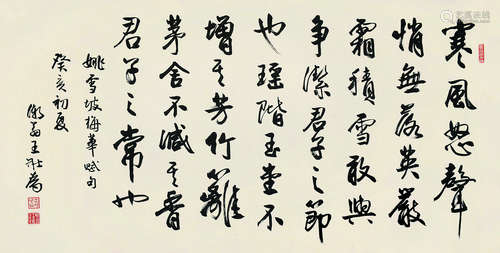 寒風怒聲
悄無落英嚴
霜積雪敢與
爭潔君子之節
也瑤階玉堂不
增其芳竹籬
茅舍不減其香
君子之常也
姚雪坡梅華賦句
癸亥初夏
王